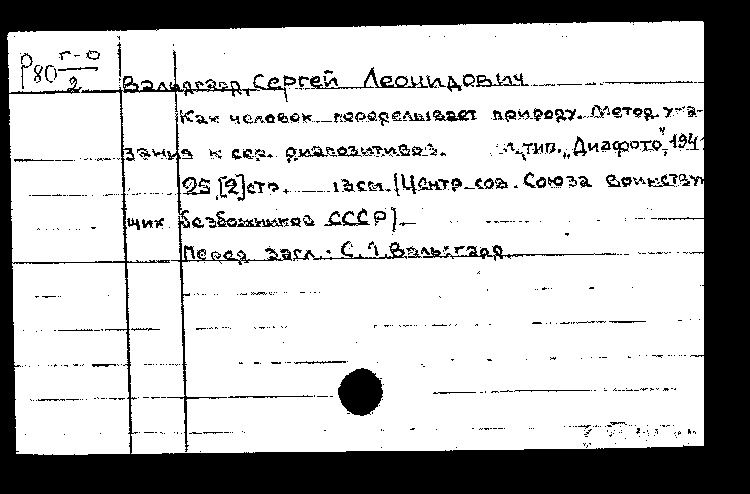 Р80 г-о
2
Вальдгард, Сергей Леонидович
Как человек переделывает природу. Метод. ука-
зания к сер. диапозитивов. М., тип. „Диафото", 1941
25, [2] стр. (Центр. сов. Союза воинствую
щих безбожников СССР).
Перед загл.: С. Л. Вальдгард.